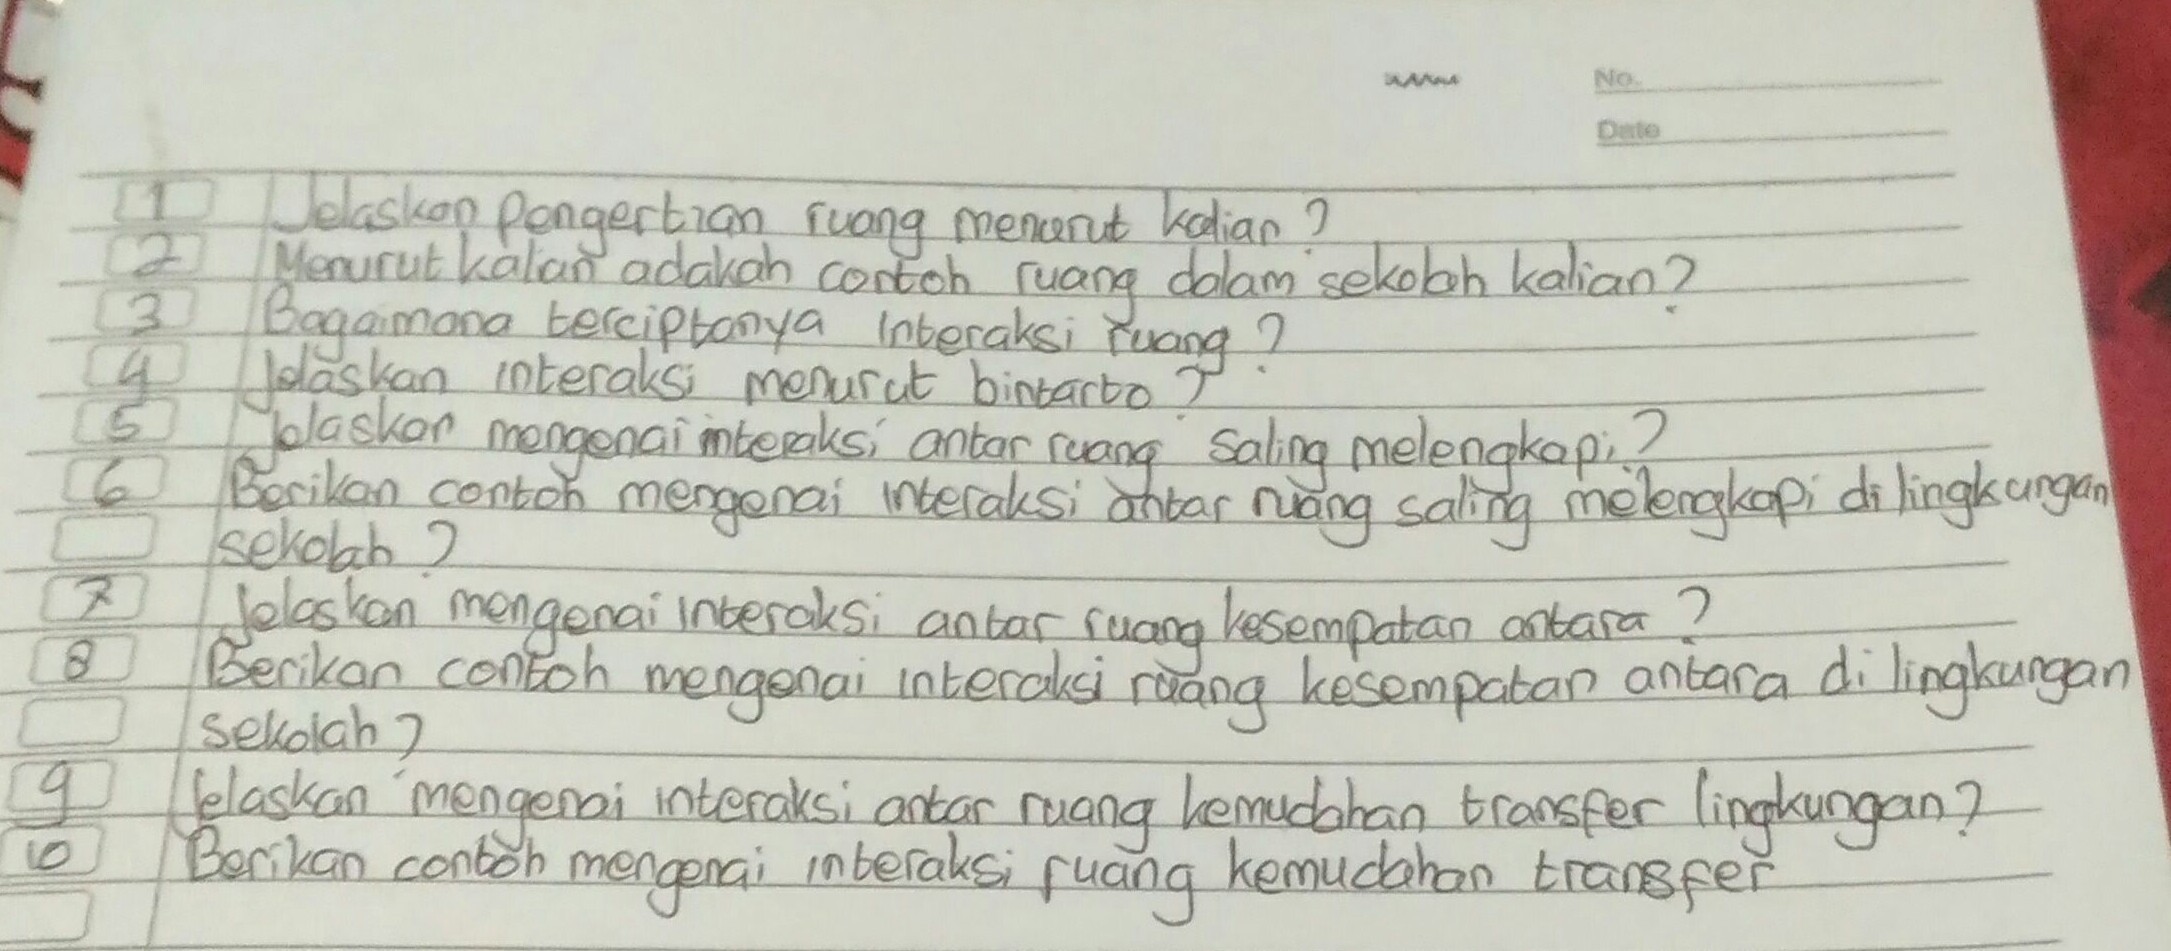 No.
Date
1 Jelaskan Pengertian ruang menurut kalian?
2 Menurut kalian adakah contoh ruang dalam sekolah kalian?
3 Bagaimana terciptanya interaksi ruang?
4 Jelaskan interaksi menurut bintarto?
5 Jelaskan mengenai interaksi antar ruang saling melengkapi?
6 Berikan contoh mengenai interaksi antar ruang saling melengkapi di lingkungan
sekolah?
7 Jelaskan mengenai interaksi antar ruang kesempatan antara?
8 Berikan contoh mengenai interaksi ruang kesempatan antara di lingkungan
sekolah?
9 Jelaskan mengenai interaksi antar ruang kemudahan transfer lingkungan?
10 Berikan contoh mengenai interaksi ruang kemudahan transfer